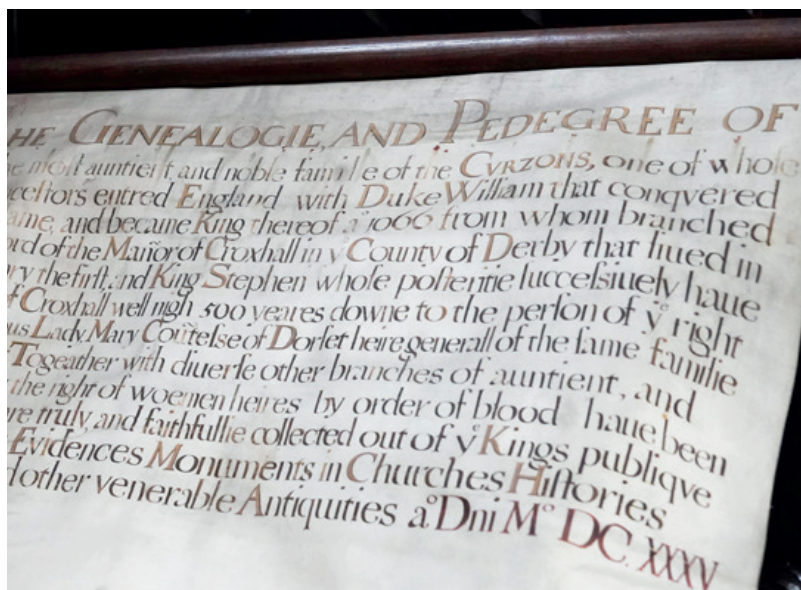 HE GENEALOGIE, AND PEDEGREE OF
e moſt auntient, and noble familie of the CVRZONS, one of whoſe
ceſtors entred England with Duke William that conqvered
ame, and became King thereof aº 1066 from whom branched
ord of the Mañor of Croxhall in yᵉ County of Derby that liued in
ry the firſt, and King Stephen whoſe poſteritie ſucceſsiuely haue
f Croxhall well nigh 500 yeares downe to the perſon of yᵉ right
us Lady Mary Coũteſse of Dorſet heire generall of the ſame familie
Togeather with diuerſe other branches of auntient, and
the right of woemen heires by order of blood haue been
re truly and faithfullie collected out of yᵉ Kings publiqve
Evidences Monuments in Churches Hiſtories
d other venerable Antiquities aº Dni Mº DC. XXXV